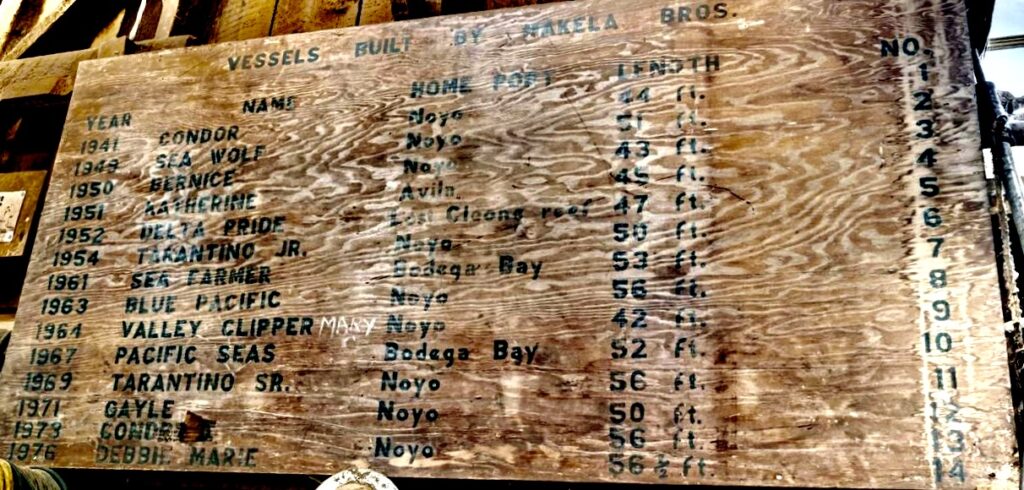 VESSELS BUILT BY MAKELA BROS.
YEAR NAME HOME PORT LENGTH NO.
1941 CONDOR Noyo 44 ft. 1
1949 SEA WOLF Noyo 51 ft. 2
1950 BERNICE Noyo 43 ft. 3
1951 KATHERINE Avila 45 ft. 4
1952 DELTA PRIDE reef 47 ft. 5
1954 TARANTINO JR. Noyo 50 ft. 6
1961 SEA FARMER Bodega Bay 53 ft. 7
1963 BLUE PACIFIC Noyo 56 ft. 8
1964 VALLEY CLIPPER MARY Noyo 42 ft. 9
1967 PACIFIC SEAS Bodega Bay 52 ft. 10
1969 TARANTINO SR. Noyo 56 ft. 11
1971 GAYLE Noyo 50 ft. 12
1973 56 ft. 13
1976 DEBBIE MARIE Noyo 56 ½ ft. 14